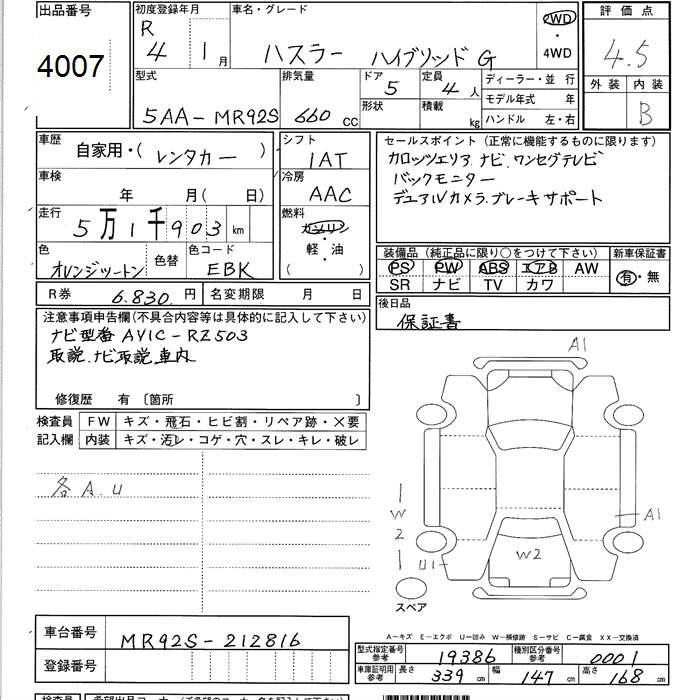 出品番号
4007
初度登録年月
R
4 年 1 月
車名・グレード
ハスラー ハイブリッド G
2WD
・
4WD
評価点
4.5
外装 内装
B
型式
5AA-MR92S
排気量
660 cc
ドア
5
形状
定員
4 人
積載
kg
ディーラー・並行
モデル年式 年
ハンドル 左・右
車歴
自家用・( レンタカー )
車検
年 月( 日)
走行
5 万 1 千 903 km
色
オレンジツートン
色替
色コード
EBK
シフト
IAT
冷房
AAC
燃料
ガソリン
・
軽・油
( )
セールスポイント (正常に機能するものに限ります)
カロッツエリア ナビ.ワンセグテレビ
バックモニター
デュアルカメラ.ブレーキサポート
装備品 (純正品に限り○をつけて下さい)
PS PW ABS エアB AW
SR ナビ TV カワ
新車保証書
有・無
R券 6.830. 円
名変期限 月 日
後日品
保証書
注意事項申告欄(不具合内容等は具体的に記入して下さい)
ナビ型番 AVIC-RZ503
取説.ナビ取説車内
修復歴 有 〔箇所 〕
検査員
記入欄
FW キズ・飛石・ヒビ割・リペア跡・×要
内装 キズ・汚レ・コゲ・穴・スレ・キレ・破レ
各 A.U
A1
A1
W2
W
2
U1
スペア
車台番号 MR92S-212816
登録番号
A-キズ E-エクボ U-凹み W-補修跡 S-サビ C-腐食 XX-交換済
型式指定番号
参考
19386
種別区分番号
参考
0001
車庫証明用
参考
長さ 339 cm
幅 147 cm
高さ 168 cm